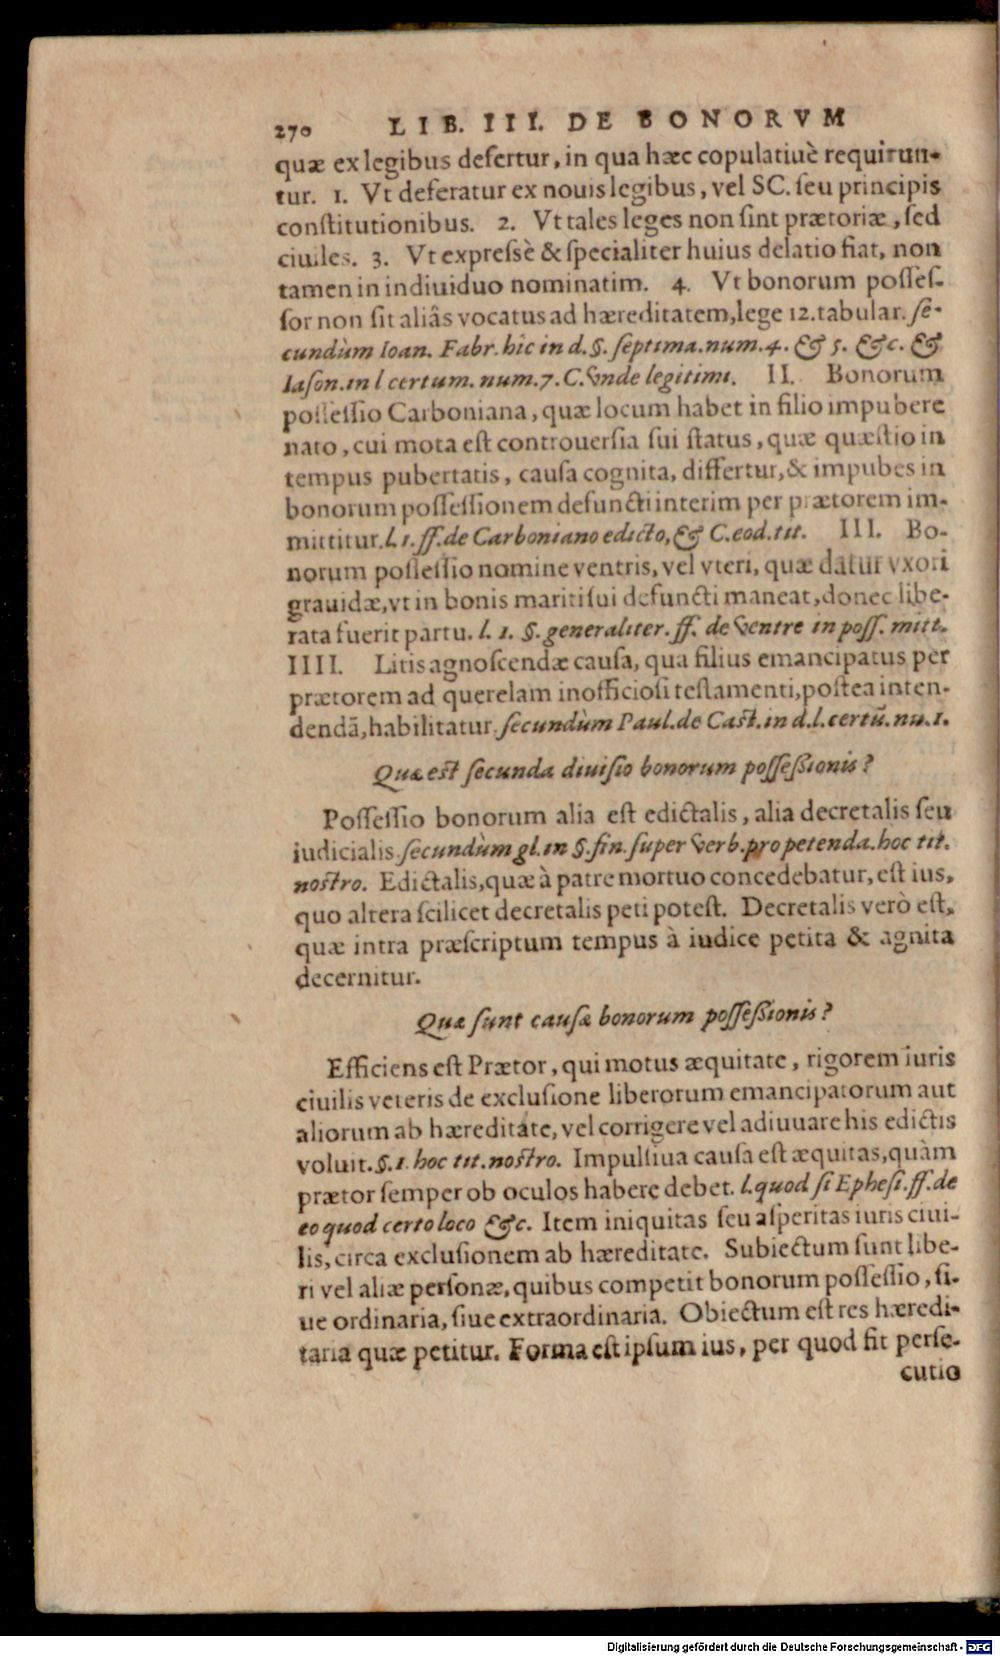 270 LIB. III. DE BONORVM
quæ ex legibus defertur, in qua hæc copulatiuè requirun-
tur. 1. Vt deferatur ex nouis legibus, vel SC. seu principis
constitutionibus. 2. Vt tales leges non sint prætoriæ, sed
ciuiles. 3. Vt expressè & specialiter huius delatio fiat, non
tamen in indiuiduo nominatim. 4. Vt bonorum posses-
sor non sit aliâs vocatus ad hæreditatem, lege 12. tabular. se-
cundùm Ioan. Fabr. hic in d. §. septima. num. 4. & 5. &c. &
Iason. in l certum. num. 7. C. vnde legitimi. II. Bonorum
possessio Carboniana, quæ locum habet in filio impubere
nato, cui mota est controuersia sui status, quæ quæstio in
tempus pubertatis, causa cognita, differtur, & impubes in
bonorum possessionem defuncti interim per prætorem im-
mittitur. l. 1. ff. de Carboniano edicto, & C. eod. tit. III. Bo-
norum possessio nomine ventris, vel vteri, quæ datur vxori
grauidæ, vt in bonis mariti sui defuncti maneat, donec libe-
rata fuerit partu. l. 1. §. generaliter. ff. de ventre in poss. mitt.
IIII. Litis agnoscendæ causa, qua filius emancipatus per
prætorem ad querelam inofficiosi testamenti, postea inten-
dendā, habilitatur. secundùm Paul. de Cast. in d. l. certū. nu. 1.
Quæ est secunda diuisio bonorum possessionis?
Possessio bonorum alia est edictalis, alia decretalis seu
iudicialis. secundùm gl. in §. fin. super verb. pro petenda. hoc tit.
nostro. Edictalis, quæ à patre mortuo concedebatur, est ius,
quo altera scilicet decretalis peti potest. Decretalis verò est,
quæ intra præscriptum tempus à iudice petita & agnita
decernitur.
Quæ sunt causæ bonorum possessionis?
Efficiens est Prætor, qui motus æquitate, rigorem iuris
ciuilis veteris de exclusione liberorum emancipatorum aut
aliorum ab hæreditate, vel corrigere vel adiuuare his edictis
voluit. §. 1. hoc tit. nostro. Impulsiua causa est æquitas, quàm
prætor semper ob oculos habere debet. l. quod si Ephesi. ff. de
eo quod certo loco &c. Item iniquitas seu asperitas iuris ciui-
lis, circa exclusionem ab hæreditate. Subiectum sunt libe-
ri vel aliæ personæ, quibus competit bonorum possessio, si-
ue ordinaria, siue extraordinaria. Obiectum est res hæredi-
taria quæ petitur. Forma est ipsum ius, per quod fit perse-
cutio
Digitalisierung gefördert durch die Deutsche Forschungsgemeinschaft - DFG